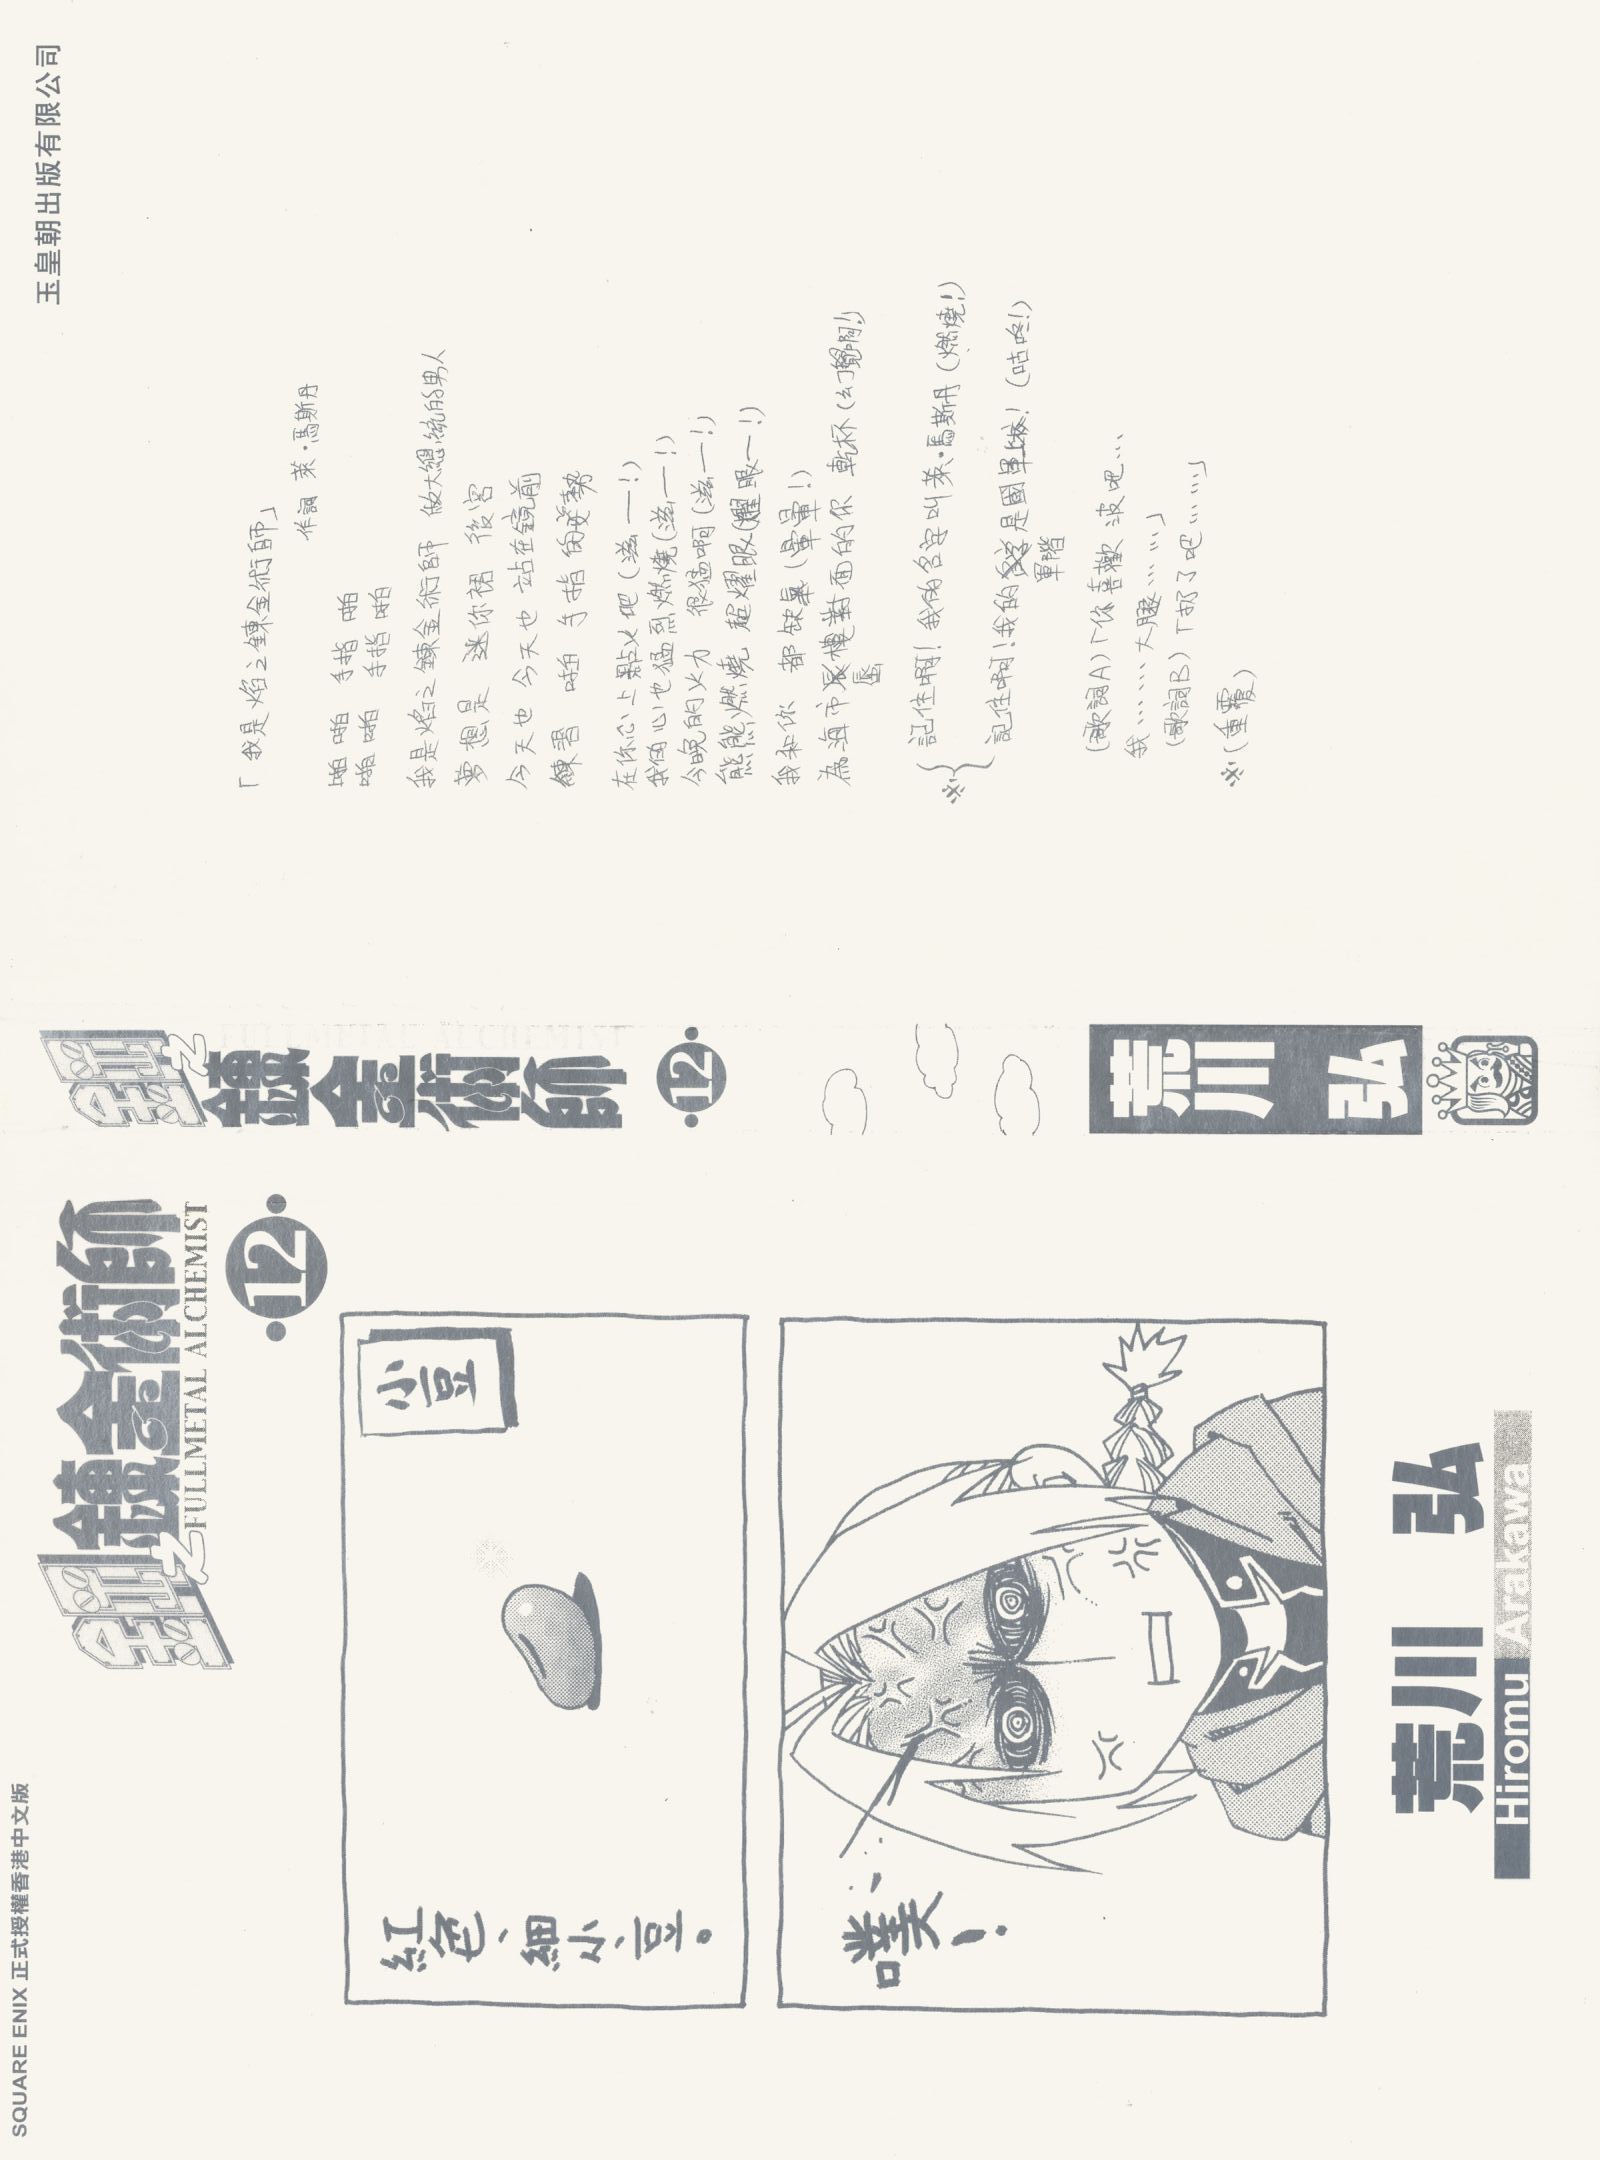 SQUARE ENIX 正式授權香港中文版
鋼之鍊金術師
FULLMETAL ALCHEMIST
12
小豆
紅色、細小豆。
噗…
荒川 弘
Hiromu Arakawa
鋼之鍊金術師
FULLMETAL ALCHEMIST
12
荒川 弘
玉皇朝出版有限公司
「我是焰之鍊金術師」
作詞 萊・馬斯丹
啪啪 手指啪
啪啪 手指啪
我是焰之鍊金術師 做大總統的男人
夢想是 迷你裙 後宮
今天也 今天也 站在鏡前
練習 啪 手指 的姿勢
在你心上點火吧(滋——!)
我的心也猛烈燃燒(滋——!)
今晚的火力 很猛啊(滋——!)
熊熊燃燒 超耀眼(耀眼—!)
我和你 都缺氧(暈暈!)
為海市蜃樓對面的你 乾杯(幻覺啊!)
蜃
※ 記住啊!我的名字叫萊・馬斯丹(燃燒!)
記住啊!我的是國軍上校!(咕咚!)
軍階
(歌詞A)「你喜歡 波吧…
我………大腿………」
(歌詞B)「奶了吧………」
※(重覆)